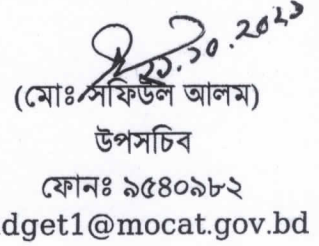 ২১.১০.২০২১
(মোঃ সফিউল আলম)
উপসচিব
ফোনঃ ৯৫৪০৯৮২
dget1@mocat.gov.bd